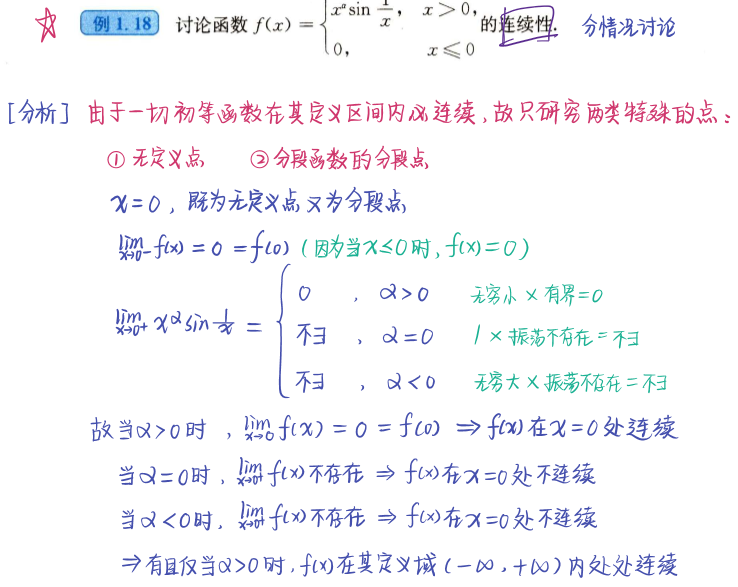 例 1.18 讨论函数 f(x) = { x^α sin 1/x, x > 0, 0, x ≤ 0 的连续性. 分情况讨论
[分析] 由于一切初等函数在其定义区间内必连续,故只研究两类特殊的点:
① 无定义点 ② 分段函数的分段点
x=0, 既为无定义点又为分段点
lim x→0⁻ f(x) = 0 = f(0) (因为当x≤0时, f(x)=0)
lim x→0⁺ x^α sin 1/x = {
0 , α>0 无穷小 × 有界=0
不∃ , α=0 1 × 振荡不存在=不∃
不∃ , α<0 无穷大 × 振荡不存在=不∃
故当α>0时, lim x→0 f(x) = 0 = f(0) ⇒ f(x)在x=0处连续
当α=0时, lim x→0⁺ f(x)不存在 ⇒ f(x)在x=0处不连续
当α<0时, lim x→0⁺ f(x)不存在 ⇒ f(x)在x=0处不连续
⇒有且仅当α>0时, f(x)在其定义域(-∞, +∞)内处处连续